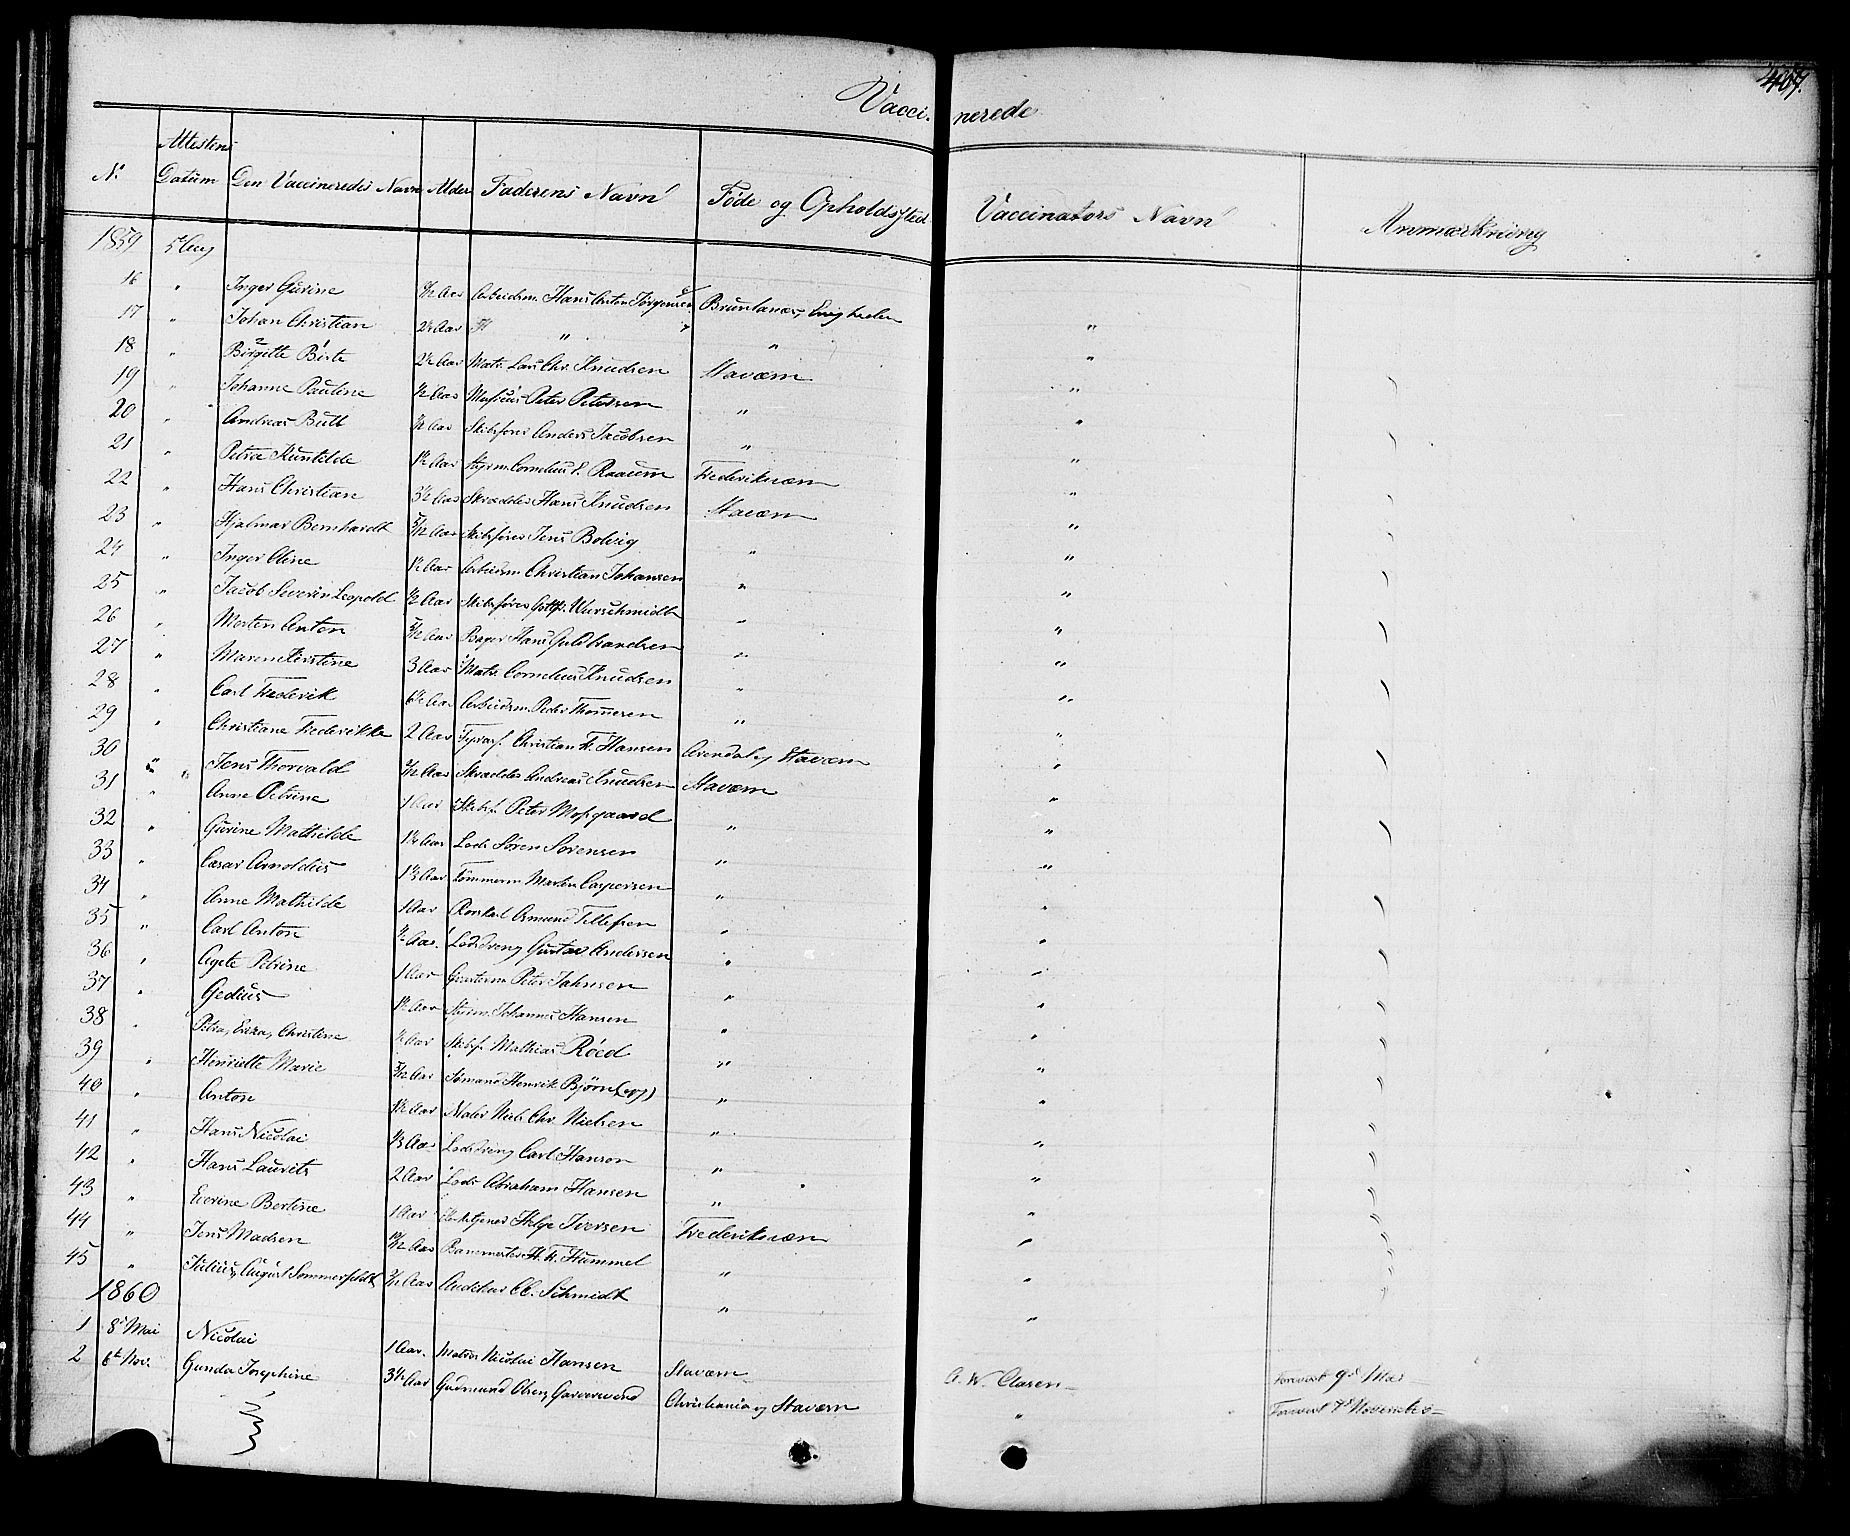 Vaccinerede
No Attestens Datum Den Vaccineredes Navn Alder Faderens Navn Føde og Opholdssted Vaccinators Navn Anmærkning
1859 5t Aug
16 " Inger Gurine Aar Arbeidsm. Hans Anton Jørgensen Brunlanæs, "
17 " Johan Christian 2½ Aar " " "
18 " Birgitte Birte 2½ Aar Matr. Lars Chr. Knudsen Staværn "
19 " Johanne Pauline ½ Aar Peter Petersen " "
20 " Andreas Butt Aar Skibsfører Anders Jacobsen " "
21 " Petra Aar Styrm. Cornelius P. Raaum Frederiksværn "
22 " Hans Christian 3½ Aar Skrædder Hans Knudsen Staværn "
23 " Hjalmar Bernhardt 5/12 Aar Skibsfører Jens Bolvig " "
24 " Inger Oline 1½ Aar Arbeidsm Christian Johansen " "
25 " Jacob Severin Leopold ½ Aar Skibsfører Wurschmidt " "
26 " Morten Anton 5/12 Aar Bager Hans Guldbrandsen " "
27 " Maren Kirstine 3 Aar Matr. Cornelius Knudsen " "
28 " Carl Frederik Aar Arbeidsm. Peder Thommesen " "
29 " Christiane Frederikke 2 Aar Christian F. Hansen Arendal og Staværn "
30 " Jens Thorvald Aar Skrædder Andreas Knudsen Staværn "
31 " Anne Petrine 1 Aar Skibsf. Peter Mosgaard " "
32 " Gurine Mathilde Aar Lods Søren Sørensen " "
33 " Cæsar Arnoldus Aar Tømmerm Martin Caspersen " "
34 " Anne Mathilde 1 Aar Rorskarl Asmund Tellefsen " "
35 " Carl Anton Aar Lodsdreng Gustav Andersen " "
36 " Agete Petrine 1 Aar Peter Johnsen " "
37 " Gedius 1½ Aar Styrm. Johannes Hansen " "
38 " Petra, Erika, Christine Aar Skibsf. Mathias Röed " "
39 " Henriette Marie Aar Sømand Henrik Bjørnberg " "
40 " Anton 1½ Aar Niels Chr. Nielsen " "
41 " Hans Nicolai Aar Lodsdreng Carl Hanson " "
42 " Hans Laurits 2 Aar Lods Abraham Hansen " "
43 " Bertine 1 Aar Helge Iversen Frederiksværn "
44 " Jens Madsen Aar H. F. Hummel " "
45 " Julius, August Sommerfeldt Aar Auditør Schmidt " "
1860
1 8de Mai Nicolai 1 Aar. Matros Nicolai Hansen Staværn A. W. Aasen Forevist 9de Mai
2 6te Nov. Gunda Josephine 3½ Aar Gudmund Christiania og Staværn " Forevist 7de November